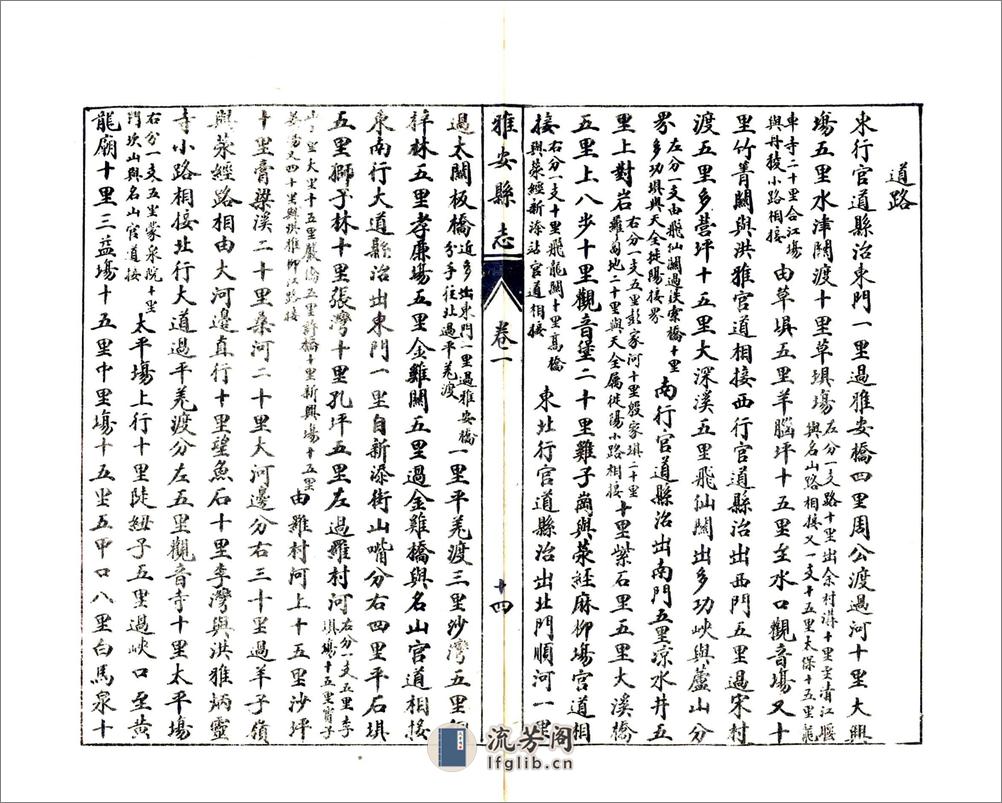 道路
東行官道縣治東門一里過雅安橋四里周公渡過河十里大興
塲五里水津關渡十里草垻塲左分一支路十里出余村溝十里至清江堰
與名山路相接又一支十五里太保十五里龍
車寺二十里合江塲
與丹稜小路相接由草垻五里羊腦坪十五里至水口觀音塲又十
里竹箐關與洪雅官道相接西行官道縣治出西門五里過宋村
渡五里多營坪十五里大深溪五里飛仙關出多功峽與蘆山分
界左分一支由飛仙關過鐵索橋十里
多功垻與天全徙陽接界南行官道縣治出南門五里凉水井五
里上對岩右分一支五里彭家河十里殷家垻二十里
羅蔔地二十里與天全属徙陽小路相接十里紫石里五里大溪橋
五里上八步十里觀音堡二十里雞子崗與荥經麻柳塲官道相
接右分一支十里飛龍關十里高橋
與荥經新添站官道相接東北行官道縣治出北門順河一里
過太關板橋近多出東門一里過雅安橋
分手往北過平羌渡一里平羌渡三里沙灣五里
梓林五里孝廉塲五里金雞關五里過金雞橋與名山官道相接
東南行大道縣治出東門一里自新添街山嘴分右四里平石垻
五里獅子林十里張灣十里孔坪五里左過羅村河右分一支五里李
垻塲十五里寶子
山十里大里十五里嚴橋五里許橋十里新興塲十五里
又四十里與洪雅柳江路接由雞村河上十五里沙坪
十里膏粱溪二十里桑河二十里大河邊分右三十里過羊子嶺
與荥經路相由大河邊直行十里望魚石十里李灣與洪雅炳靈
寺小路相接北行大道過平羌渡分左五里觀音寺十里太平塲
右分一支五里蒙泉院十里
門坎山與名山官道接太平塲上行十里陡紐子五里過峽口至黄
龍廟十里三益塲十五里中里塲十五里五甲口八里白馬泉十
雅安縣志
卷一
十四
流芳阁
lfglib.cn